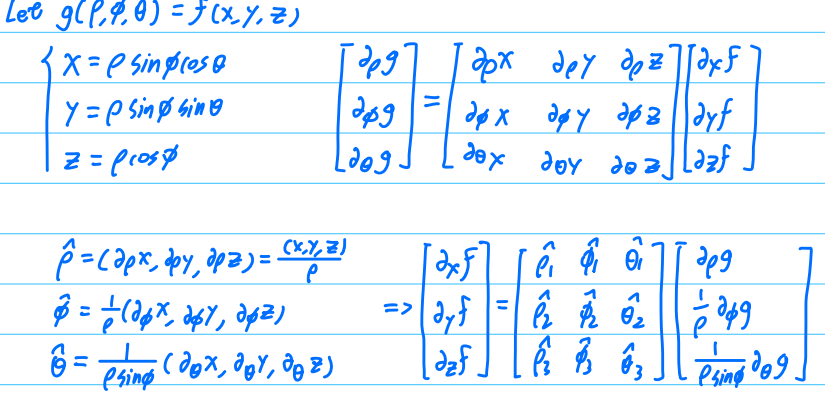 Let g(ρ,ϕ,θ) = f(x,y,z)
{ x = ρ sinϕ cosθ
y = ρ sinϕ sinθ
z = ρ cosϕ
[∂ρg ∂ϕg ∂θg] = [∂ρx ∂ρy ∂ρz
∂ϕx ∂ϕy ∂ϕz
∂θx ∂θy ∂θz] [∂xf ∂yf ∂zf]
ρ̂ = (∂ρx, ∂ρy, ∂ρz) = (x,y,z)/ρ
ϕ̂ = 1/ρ (∂ϕx, ∂ϕy, ∂ϕz)
θ̂ = 1/(ρ sinϕ) (∂θx, ∂θy, ∂θz)
=> [∂xf ∂yf ∂zf] = [ρ̂₁ ϕ̂₁ θ̂₁
ρ̂₂ ϕ̂₂ θ̂₂
ρ̂₃ ϕ̂₃ θ̂₃] [∂ρg
1/ρ ∂ϕg
1/(ρ sinϕ) ∂θg]